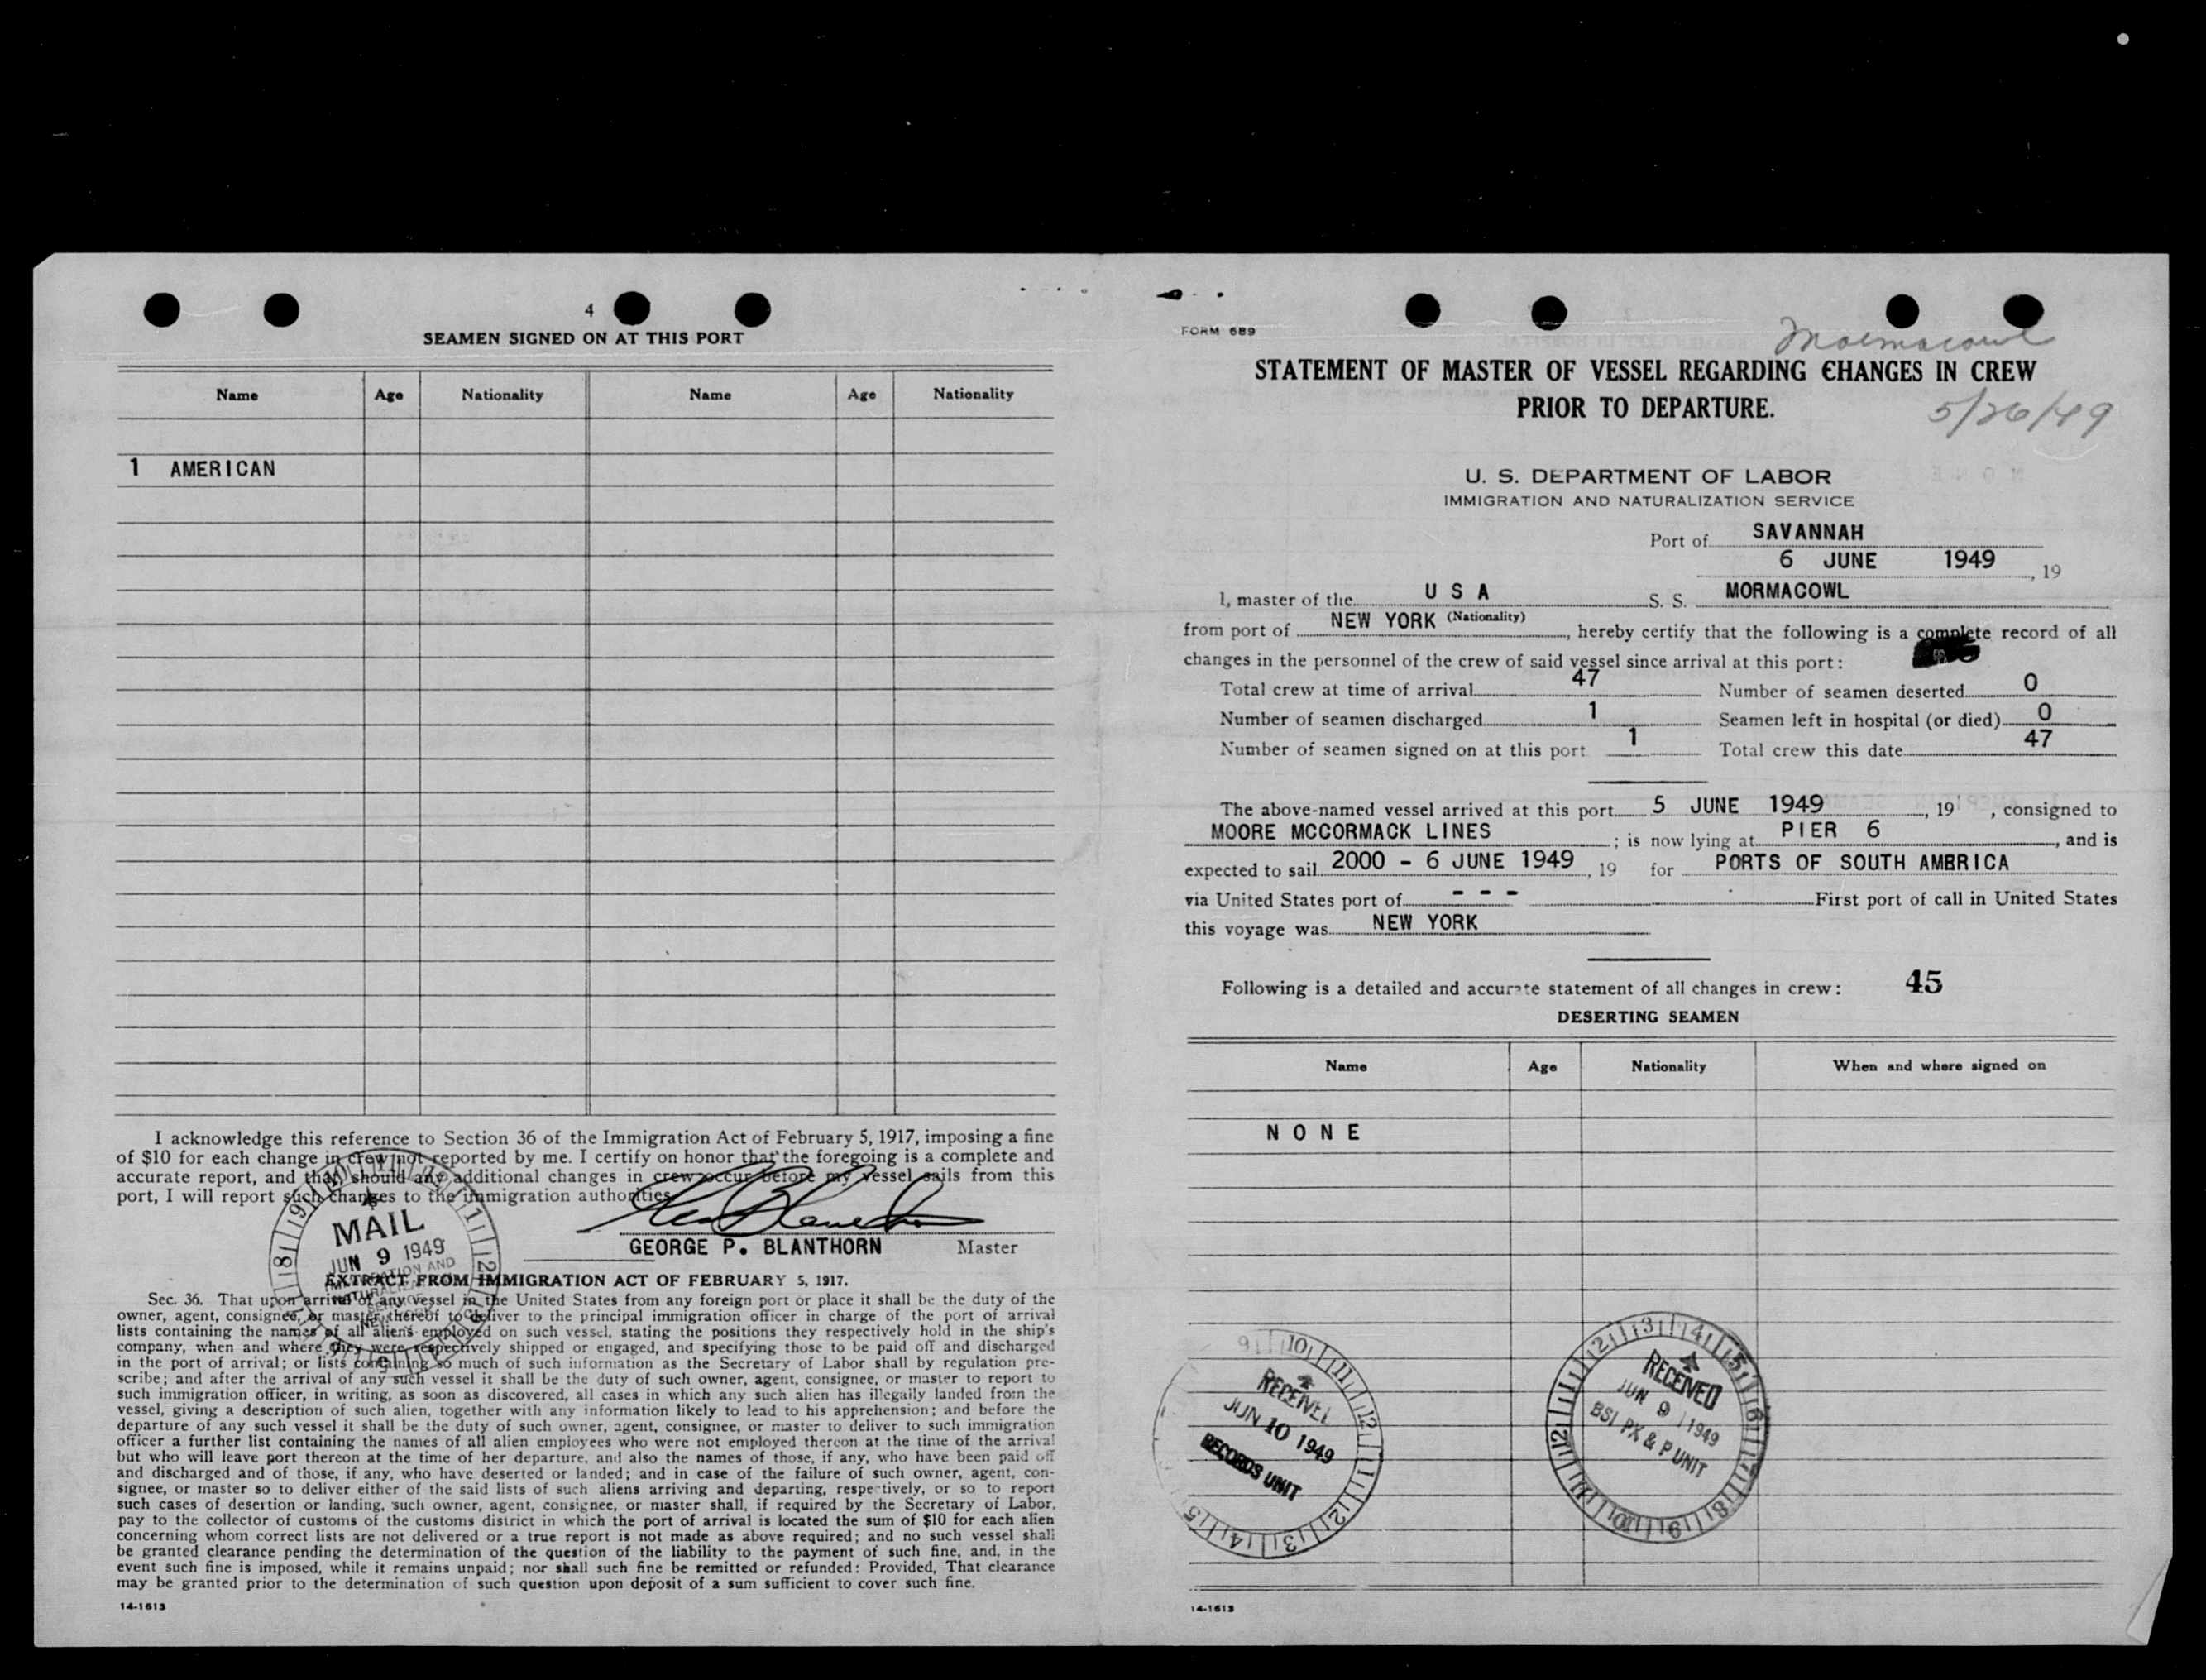 4
SEAMEN SIGNED ON AT THIS PORT
Name Age Nationality Name Age Nationality
1 AMERICAN
I acknowledge this reference to Section 36 of the Immigration Act of February 5, 1917, imposing a fine
of $10 for each change in crew not reported by me. I certify on honor that the foregoing is a complete and
accurate report, and that, should any additional changes in crew occur before my vessel sails from this
port, I will report such changes to the immigration authorities.
GEORGE P. BLANTHORN Master
MAIL
JUN 9 1949
EXTRACT FROM IMMIGRATION ACT OF FEBRUARY 5, 1917.
Sec. 36. That upon arrival of any vessel in the United States from any foreign port or place it shall be the duty of the
owner, agent, consignee, or master thereof to deliver to the principal immigration officer in charge of the port of arrival
lists containing the names of all aliens employed on such vessel, stating the positions they respectively hold in the ship's
company, when and where they were respectively shipped or engaged, and specifying those to be paid off and discharged
in the port of arrival; or lists containing so much of such information as the Secretary of Labor shall by regulation pre-
scribe; and after the arrival of any such vessel it shall be the duty of such owner, agent, consignee, or master to report to
such immigration officer, in writing, as soon as discovered, all cases in which any such alien has illegally landed from the
vessel, giving a description of such alien, together with any information likely to lead to his apprehension; and before the
departure of any such vessel it shall be the duty of such owner, agent, consignee, or master to deliver to such immigration
officer a further list containing the names of all alien employees who were not employed thereon at the time of the arrival
but who will leave port thereon at the time of her departure, and also the names of those, if any, who have been paid off
and discharged and of those, if any, who have deserted or landed; and in case of the failure of such owner, agent, con-
signee, or master so to deliver either of the said lists of such aliens arriving and departing, respectively, or so to report
such cases of desertion or landing, such owner, agent, consignee, or master shall, if required by the Secretary of Labor,
pay to the collector of customs of the customs district in which the port of arrival is located the sum of $10 for each alien
concerning whom correct lists are not delivered or a true report is not made as above required; and no such vessel shall
be granted clearance pending the determination of the question of the liability to the payment of such fine, and, in the
event such fine is imposed, while it remains unpaid; nor shall such fine be remitted or refunded: Provided, That clearance
may be granted prior to the determination of such question upon deposit of a sum sufficient to cover such fine.
14-1613
FORM 689
Mormacowl
STATEMENT OF MASTER OF VESSEL REGARDING CHANGES IN CREW
PRIOR TO DEPARTURE.
5/26/49
U. S. DEPARTMENT OF LABOR
IMMIGRATION AND NATURALIZATION SERVICE
Port of SAVANNAH
6 JUNE 1949, 19
I, master of the U S A S. S. MORMACOWL
from port of NEW YORK (Nationality), hereby certify that the following is a complete record of all
changes in the personnel of the crew of said vessel since arrival at this port:
Total crew at time of arrival 47 Number of seamen deserted 0
Number of seamen discharged 1 Seamen left in hospital (or died) 0
Number of seamen signed on at this port 1 Total crew this date 47
The above-named vessel arrived at this port 5 JUNE 1949, 19 , consigned to
MOORE MCCORMACK LINES; is now lying at PIER 6, and is
expected to sail 2000 - 6 JUNE 1949, 19 for PORTS OF SOUTH AMBRICA
via United States port of - - - First port of call in United States
this voyage was NEW YORK
Following is a detailed and accurate statement of all changes in crew: 45
DESERTING SEAMEN
Name Age Nationality When and where signed on
N O N E
RECEIVED
JUN 10 1949
RECORDS UNIT
RECEIVED
JUN 9 1949
BSI PX & P UNIT
14-1613